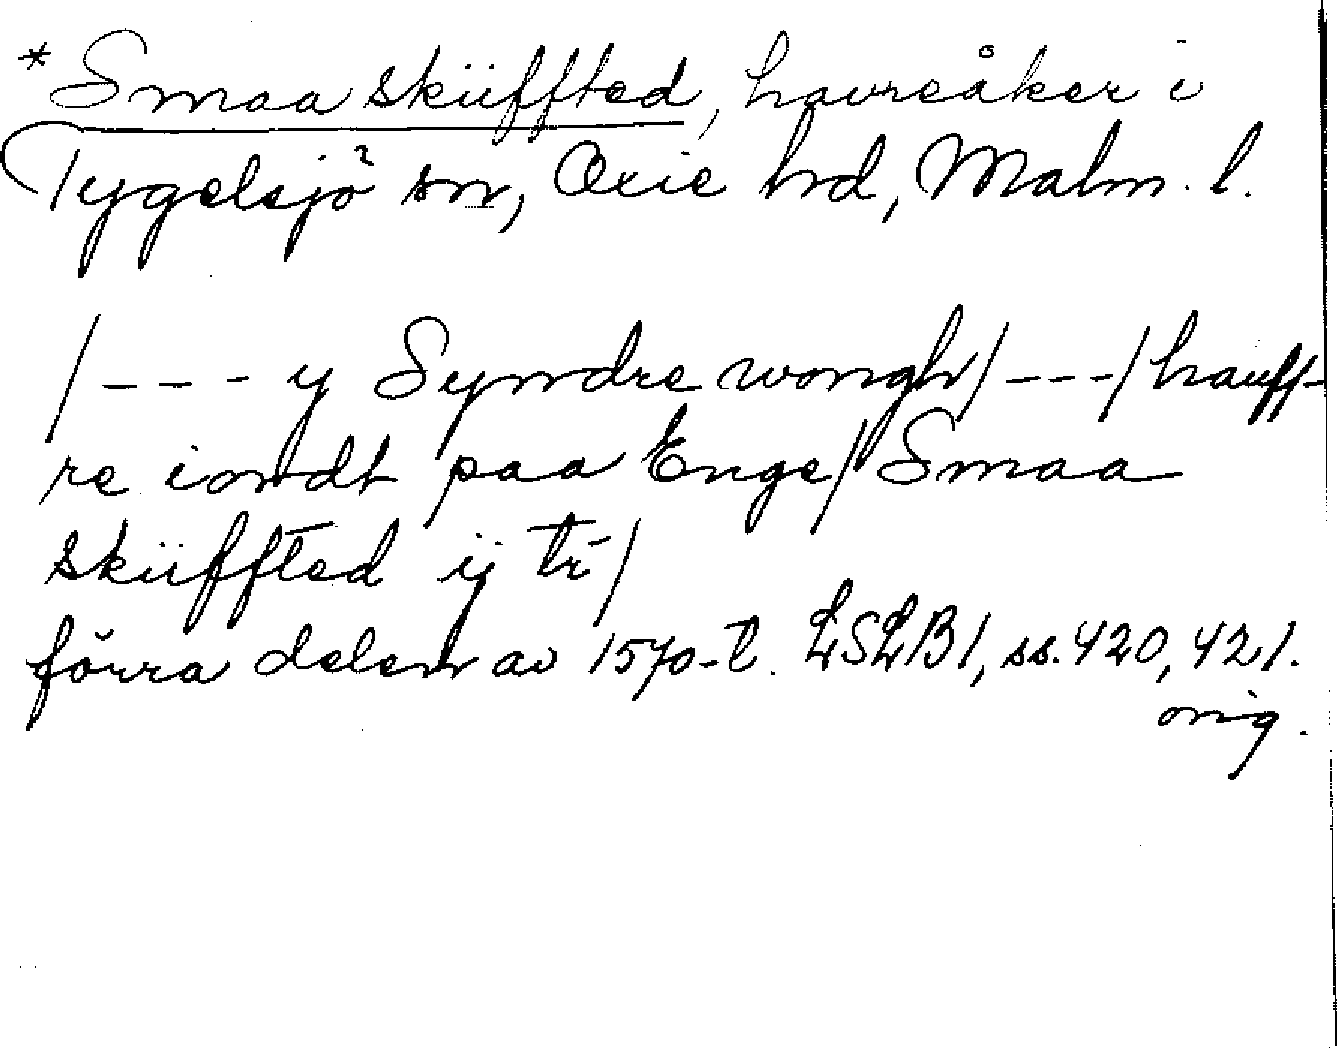 *Smaa skiiffted, havreåker i
Tygelsjö sn, Oxie hd, Malm. l.
/--- y Syndre wongh/---/hauff-
re iordt paa Enge/Smaa
skiiffted ij tr/
förra delen av 1570-t. LSLB1, ss. 420, 421.
orig.